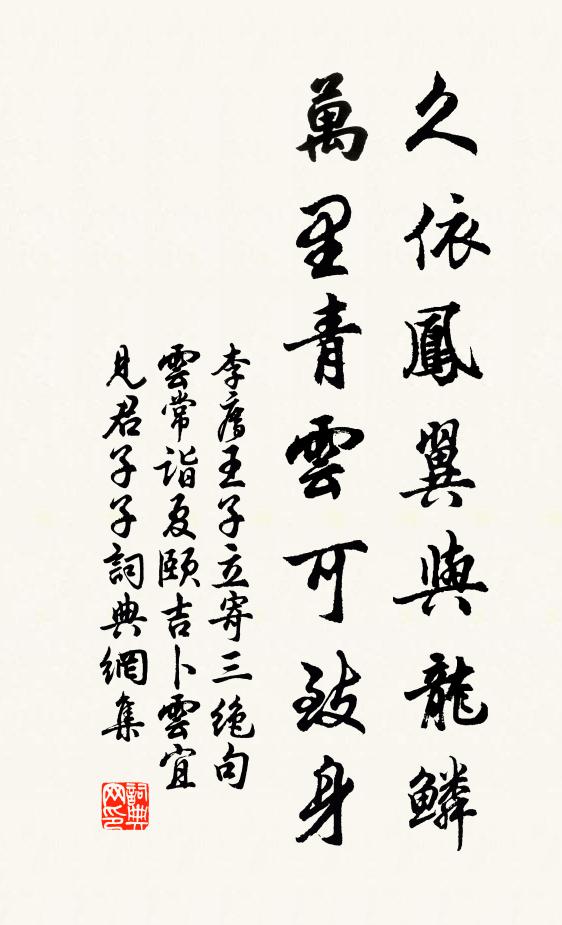 久依鳳翼與龍鱗
萬里青雲可致身
李廌王子立寄三絶句
雲常詣夏頤吉卜雲宜
見君子子詞典網集
詞典
网印